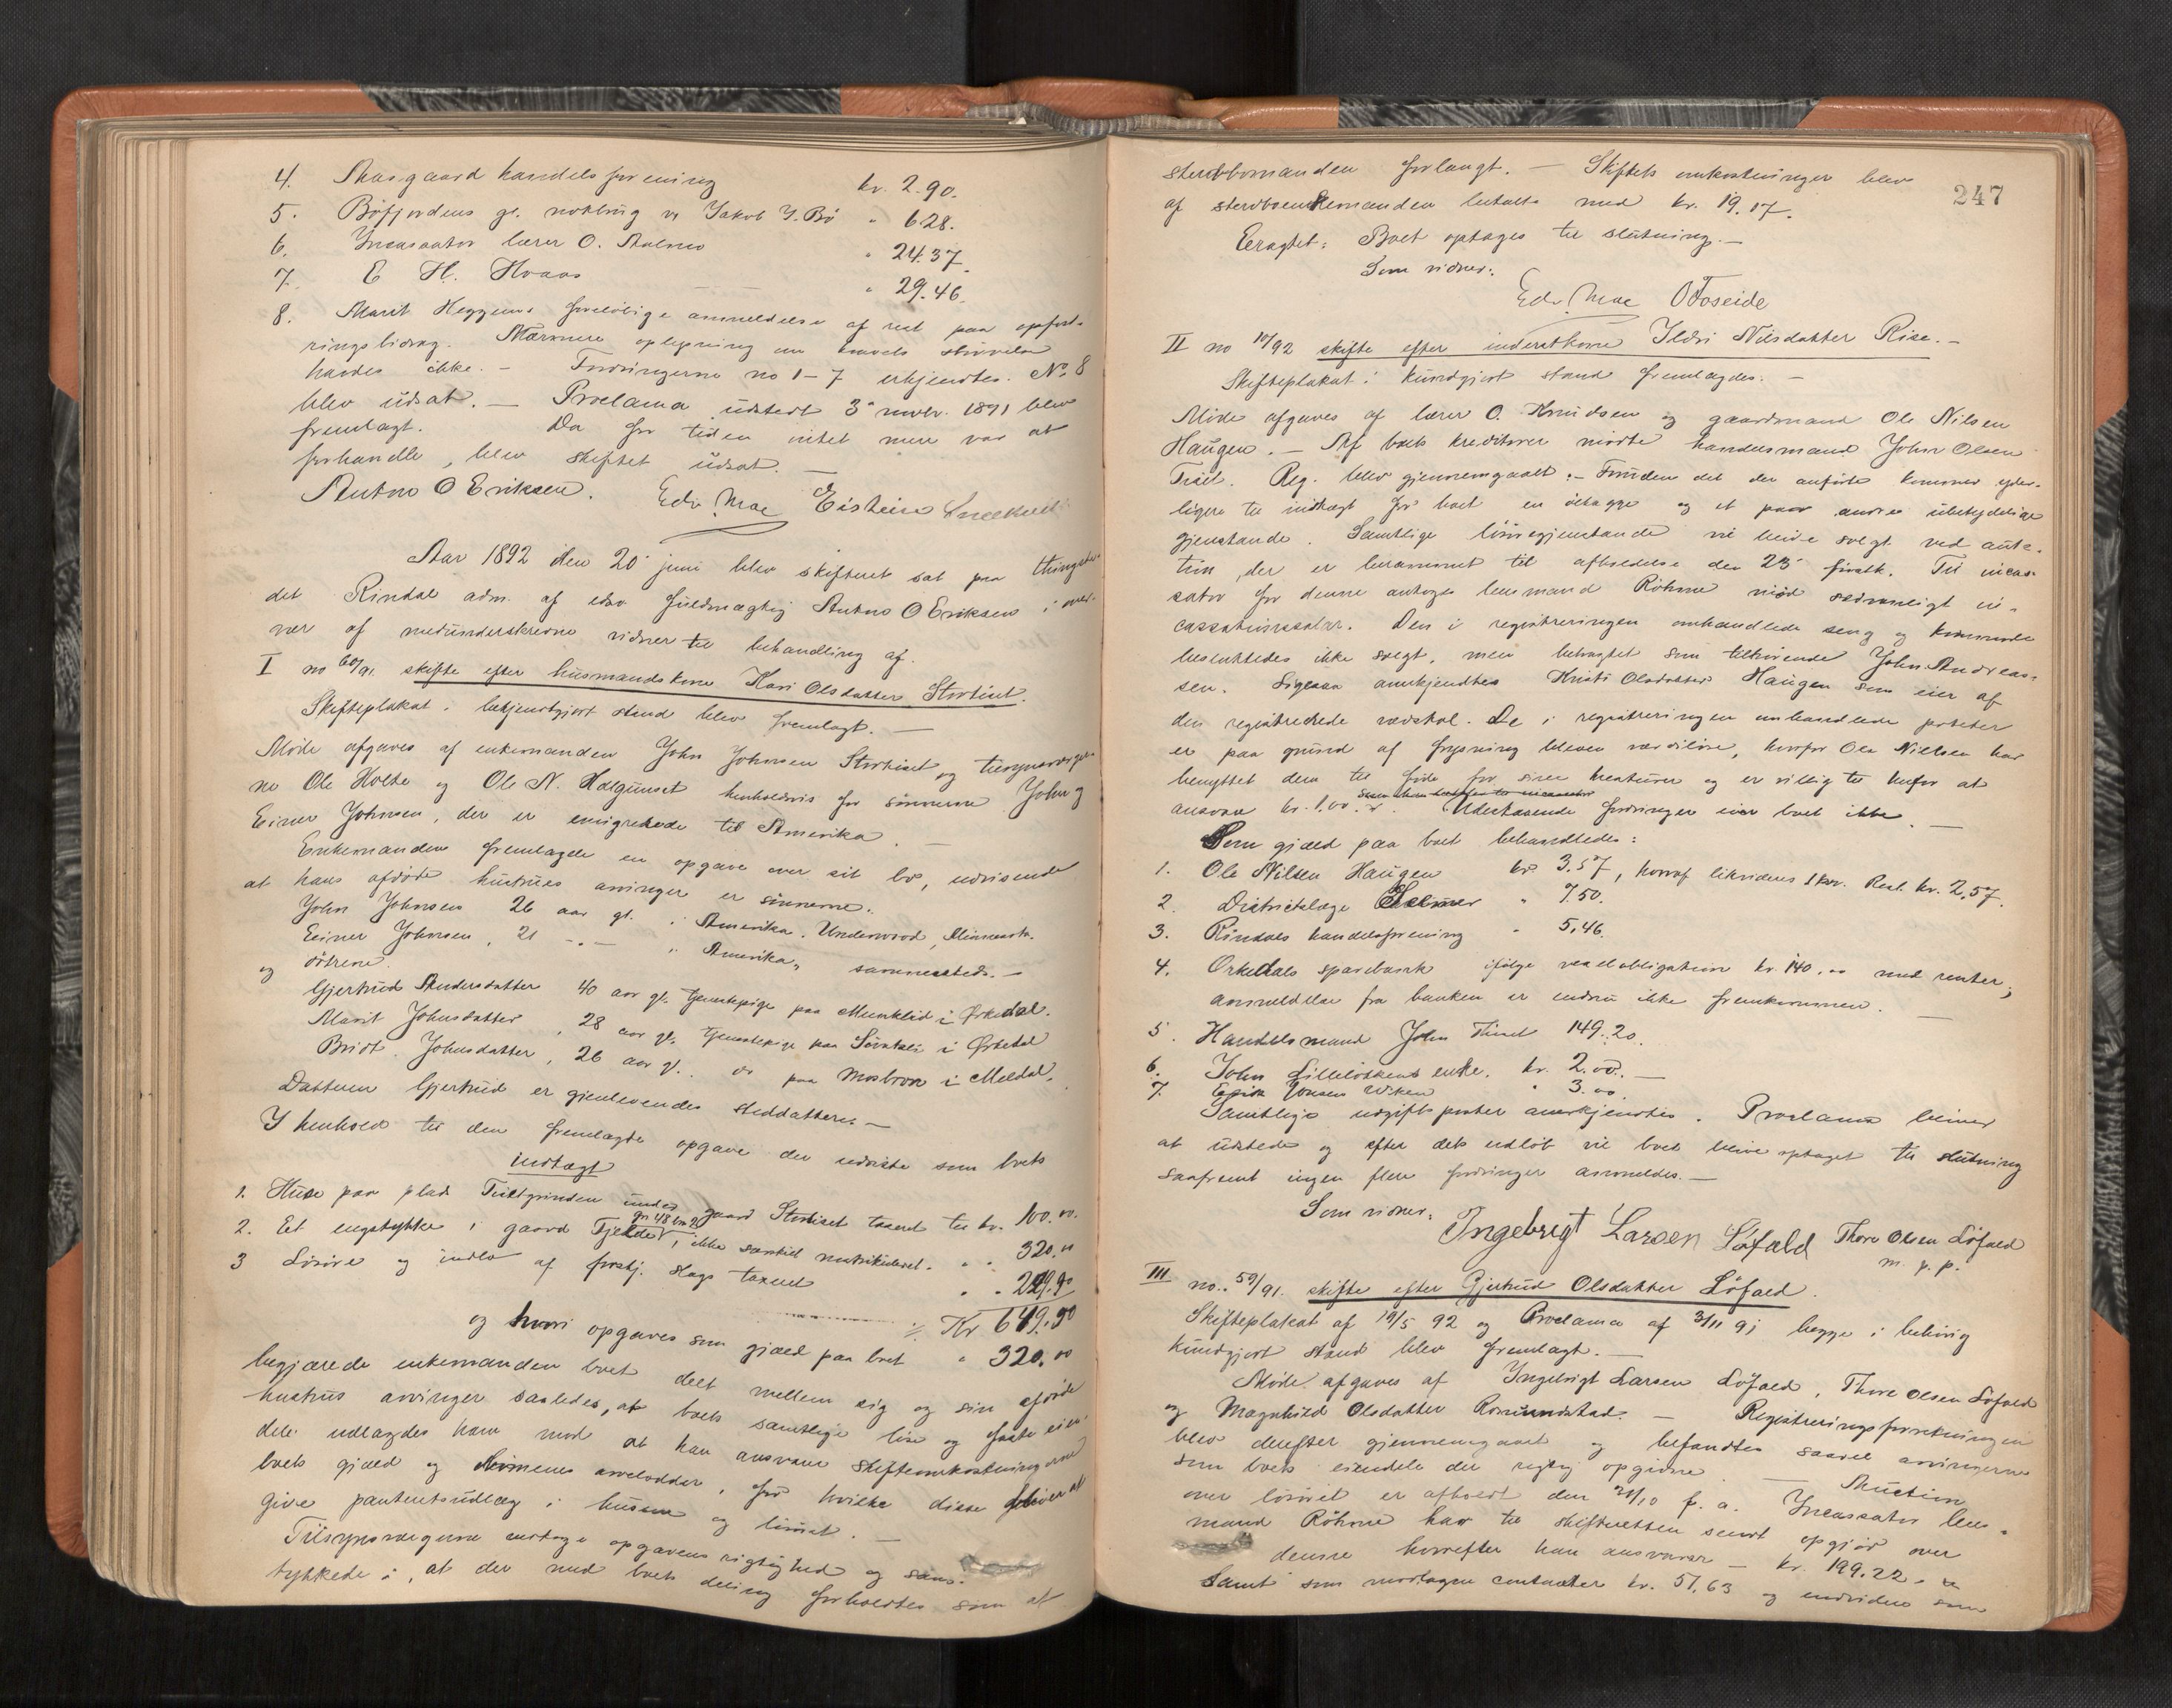 4. Aasgaard handelsforening kr. 2.90.
5. Böfjordens gl. notbrug v/ Jakob J. Bö " 6.28.
6. Incassator lærer O. Aalmo " 24.37.
7. E H. Hvaas " 29.46.
8. Marit Heggems foreløbige anmeldelse af rest paa opfost-
ringsbidrag. Nærmere oplysning om kravets størrelse
havdes ikke. — Fordringerne no 1-7 erkjendtes. No 8
blev udsat. — Proclama udstedt 3' novbr. 1891 blev
fremlagt. Da for tiden intet mere var at
forhandle, blev skiftet udsat. —
Anton O Eriksen. Edv. Moe Eistein
Aar 1892 den 20' juni blev skifteret sat paa thingste-
det Rindal adm. af edsv. fuldmægtig Anton O Eriksen i over-
vær af medunderskrevne vidner til behandling af.
I no 60/91. skifte efter husmandskone Kari Olsdatter Stortiset.
Skifteplakat i bekjendtgjort stand blev fremlagt. —
Møde afgaves af enkemanden John Johnsen Stortiset og tilsynsværger-
ne Ole Holte og Ole N. Halgunset henholdsvis for sønnerne John og
Einer Johnsen, der er emigrerede til Amerika. —
Enkemanden fremlagde en opgave over sit bo, udvisende
at hans afdøde hustrues arvinger er sønnerne:
John Johnsen 26 aar gl. i Amerika. Underwood, Minnesota.
Einer Johnsen, 21 -"- " Amerika, sammesteds. —
og døtrene
Gjertrud Andersdatter 40 aar gl. tjenestepige paa Munklid i Ørkedal.
Marit Johnsdatter, 28 aar gl. tjenestepige paa i Ørkedal
Bridt. Johnsdatter, 26 aar gl. do paa Mosbron i Meldal.
Datteren Gjertrud er gjenlevendes steddatter. —
I henhold til den fremlagte opgave der udviste som boets
indtægt
1. Huse paa plads under gaard Stortiset taxeret til kr. 100.00.
2. Et engstykke i gaard Tjelder gn 48 bn 2, ikke særskilt matrikuleret. " " 320.00
3 Løsøre og indbo af forskj. slags taxeret " " 229.90
Kr 649.90
og hvori opgaves som gjæld paa boet ./. " 320.00
begjærede enkemanden boet delt mellem sig og sin afdøde
hustrus arvinger saaledes, at boets samtlige løse og faste eien-
dele udlagdes ham mod at han ansvarer skifteomkostningerne
boets gjæld og arvelodder, for hvilke disse gives at
give panteretsudlæg i husene og løsøret. —
Tilsynsværgerne antoge opgavens rigtighed og sam-
tykkede i, at der med boets deling forholdtes som af

247
sterbbomanden forlangt. — Skiftets omkostninger blev
af sterbboenkemanden betalte med kr. 19.17.
Eragtet: Boet optages til slutning. —
Som vidner:
Edv. Moe O Foseide
II no 10/92 skifte efter inderstkone Ildri Nilsdatter Rise. —
Skifteplakat i kundgjort stand fremlagdes. —
Møde afgaves af lærer O. Knudsen og gaardmand Ole Nilsen
Haugen. — Af boets kreditorer mødte handelsmand John Olsen
Tiset. Reg. blev gjennemgaaet: — Foruden det der anførte kommer yder-
ligere til indtægt for boet en og et par andre ubetydelige
gjenstande. Samtlige løsøregjenstande vil blive solgt ved auk-
tion, der er berammet til afholdelse den 25' førstk. Til incas-
sator for denne antoges lensmand Röhme mod sedvanligt in-
cassationssalær. Den i registreringen omhandlede seng og kommode
besluttedes ikke solgt, men betragtet som tilhørende John Andreas-
sen. Ligesaa anerkjendtes Kristi Olsdatter Haugen som eier af
den registrerede vedskol. De i registreringen omhandlede poteter
er paa grund af frysning bleven værdiløse, hvorfor Ole Nielsen har
benyttet dem til føde for sine kreaturer og er villig til herfor at
ansvare kr. 1.00. Udestaaende fordringer eier boet ikke. —
Som gjæld paa boet behandledes:
1. Ole Nilsen Haugen kr 3.57, hvoraf likvideres 1 kr. Rest. kr. 2.57.
2. Districtslæge " 7.50.
3. Rindals handelsforening " 5.46.
4. Orkedals sparebank ifølge vexelobligation kr. 140.00 med renter;
anmeldelse fra banken er endnu ikke fremkommen. —
5. Handelsmand John Tiset 149.20.
6. John Lilleløkkens enke. kr. 2.00. —
7. Jonsen " 3.00.
Samtlige udgiftsposter anerkjendtes. Proclama bliver
at udstede og efter dets udløb vil boet blive optaget til slutning
saafremt ingen flere fordringer anmeldes. —
Som vidner:
Ingebrigt Larsen Løfald Thore Olsen Løfald
m. p. p.
III no. 59/91. skifte efter Gjertrud Olsdatter Løfald.
Skifteplakat af 19/5 92 og Proclama af 3/11 91 begge i behørig
kundgjort stand blev fremlagt. —
Møde afgaves af Ingebrigt Larsen Løfald, Thore Olsen Løfald
og Magnhild Olsdatter Romundstad. — Registreringsforretningen
blev derefter gjennemgaaet og befandtes saavel arvingerne
som boets eiendele der rigtig opgivne. — Auction
over løsøret er afholdt den 31/10 f. a. Incassator lens-
mand Röhme har til skifteretten sendt opgjør over
denne hvorefter han ansvarer — kr. 199.22.
Samt som modtagne contanter kr. 51.63 og endvidere som